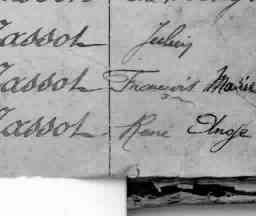 Tassot Julien
Tassot François Marie
Tassot René Ange